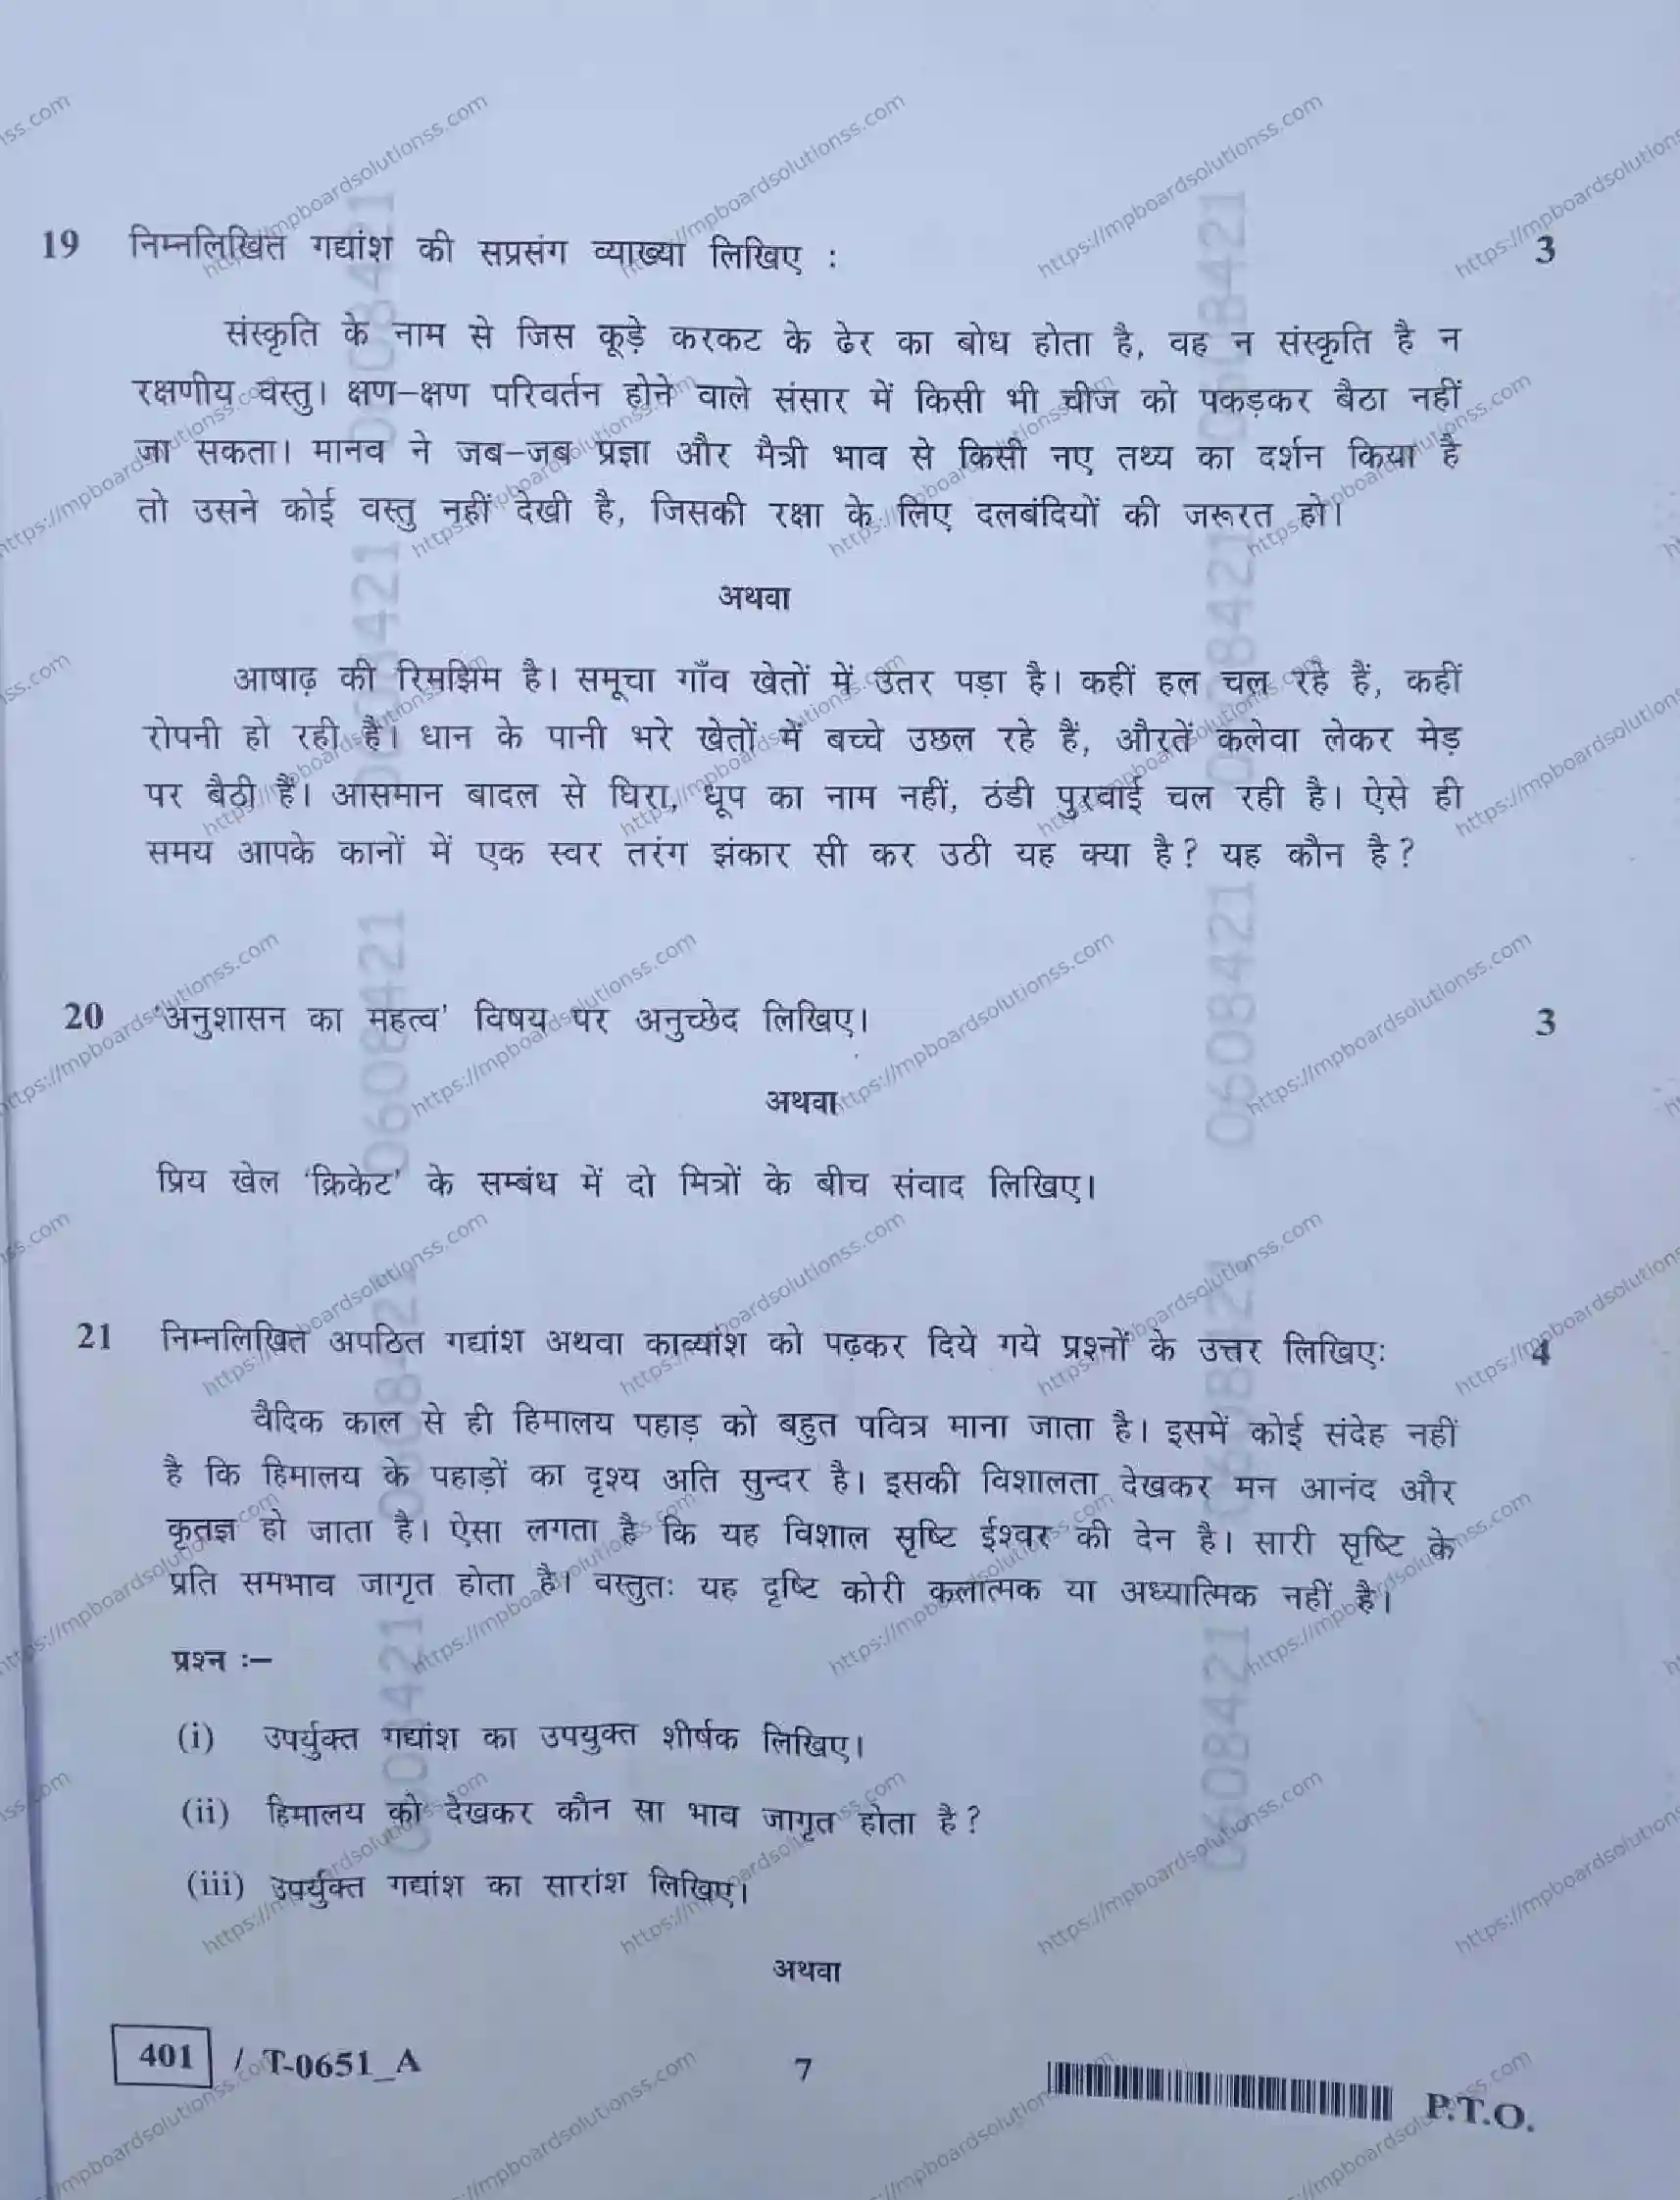 19 निम्नलिखित गद्यांश की सप्रसंग व्याख्या लिखिए : 3
संस्कृति के नाम से जिस कूड़े करकट के ढेर का बोध होता है, वह न संस्कृति है न
रक्षणीय वस्तु। क्षण–क्षण परिवर्तन होने वाले संसार में किसी भी चीज को पकड़कर बैठा नहीं
जा सकता। मानव ने जब–जब प्रज्ञा और मैत्री भाव से किसी नए तथ्य का दर्शन किया है
तो उसने कोई वस्तु नहीं देखी है, जिसकी रक्षा के लिए दलबंदियों की जरूरत हो।
अथवा
आषाढ़ की रिमझिम है। समूचा गाँव खेतों में उतर पड़ा है। कहीं हल चल रहे हैं, कहीं
रोपनी हो रही है। धान के पानी भरे खेतों में बच्चे उछल रहे हैं, औरतें कलेवा लेकर मेड़
पर बैठी हैं। आसमान बादल से घिरा, धूप का नाम नहीं, ठंडी पुरवाई चल रही है। ऐसे ही
समय आपके कानों में एक स्वर तरंग झंकार सी कर उठी यह क्या है? यह कौन है?
20 'अनुशासन का महत्व' विषय पर अनुच्छेद लिखिए। 3
अथवा
प्रिय खेल 'क्रिकेट' के सम्बंध में दो मित्रों के बीच संवाद लिखिए।
21 निम्नलिखित अपठित गद्यांश अथवा काव्यांश को पढ़कर दिये गये प्रश्नों के उत्तर लिखिए: 4
वैदिक काल से ही हिमालय पहाड़ को बहुत पवित्र माना जाता है। इसमें कोई संदेह नहीं
है कि हिमालय के पहाड़ों का दृश्य अति सुन्दर है। इसकी विशालता देखकर मन आनंद और
कृतज्ञ हो जाता है। ऐसा लगता है कि यह विशाल सृष्टि ईश्वर की देन है। सारी सृष्टि के
प्रति समभाव जागृत होता है। वस्तुतः यह दृष्टि कोरी कलात्मक या अध्यात्मिक नहीं है।
प्रश्न :–
(i) उपर्युक्त गद्यांश का उपयुक्त शीर्षक लिखिए।
(ii) हिमालय को देखकर कौन सा भाव जागृत होता है?
(iii) उपर्युक्त गद्यांश का सारांश लिखिए।
अथवा
401 / T-0651_A 7 P.T.O.
https://mpboardsolutionss.com
0608421